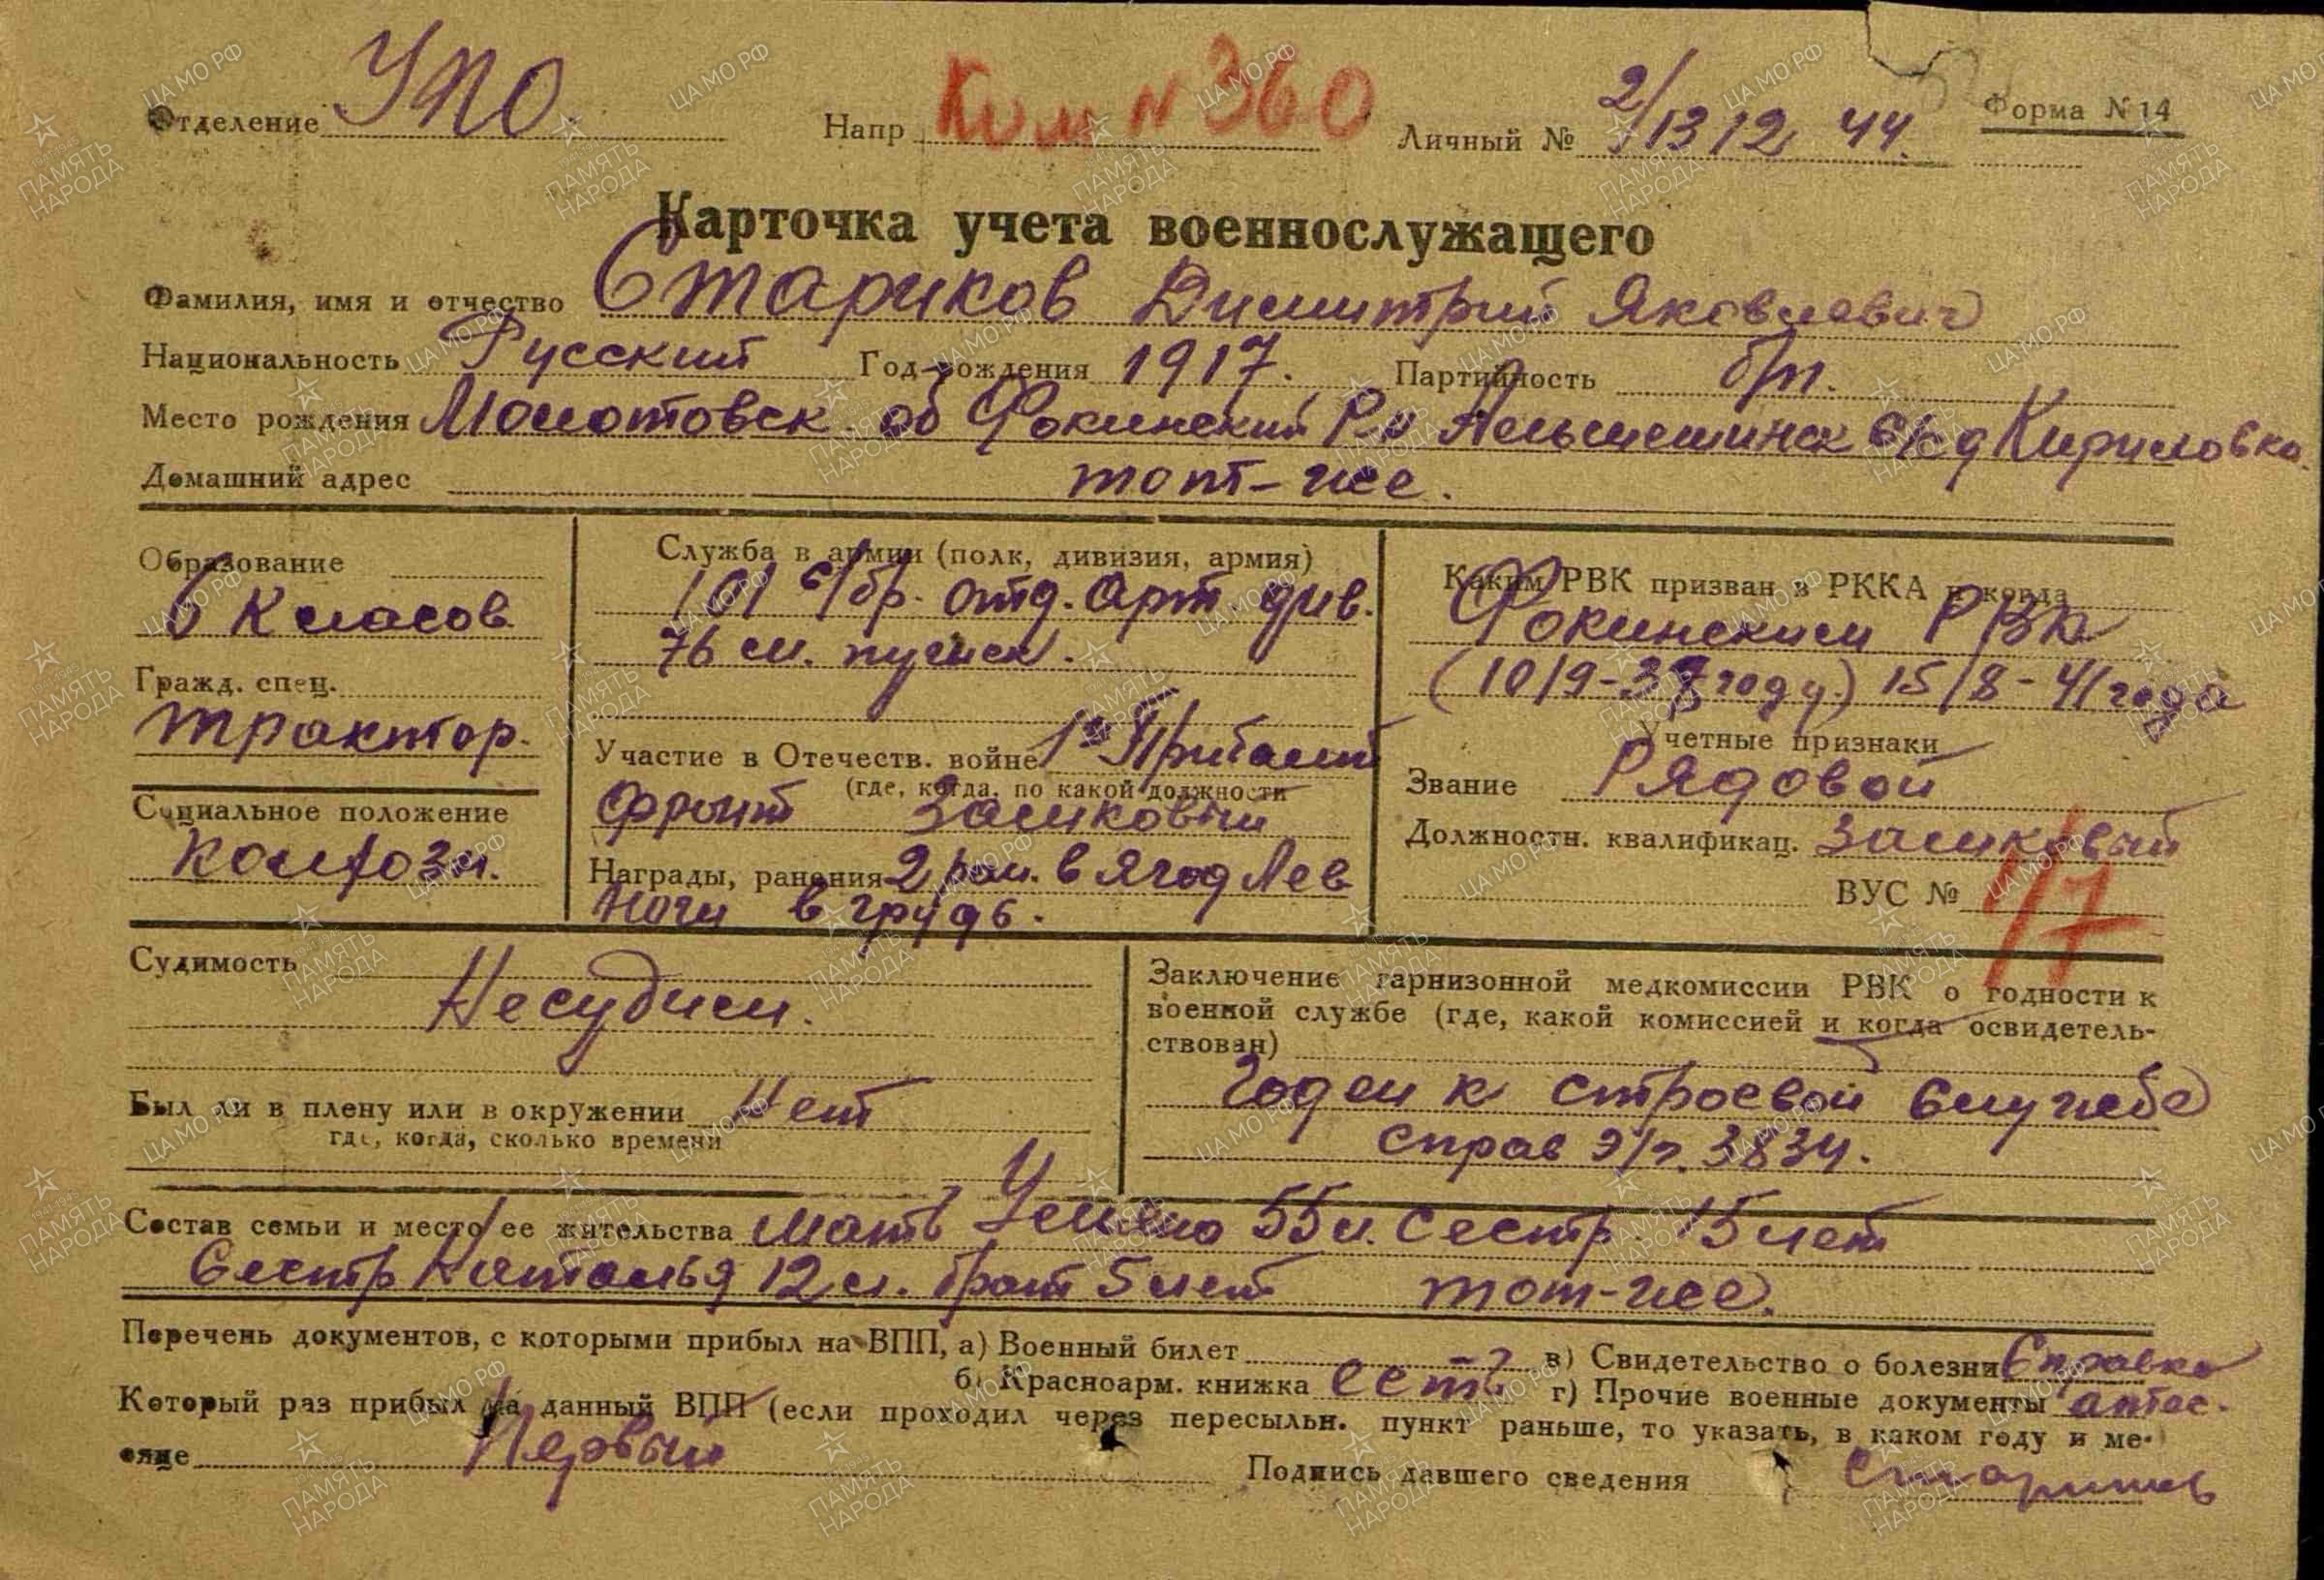 Отделение УПО. Напр Ком N 360 Личный № 2/1312 44. Форма N 14
Карточка учета военнослужащего
Фамилия, имя и отчество Стариков Димитрий Яковлевич
Национальность Русский Год рождения 1917. Партийность б/п.
Место рождения Молотовск об Фокинский Рн с/с д Кириловка.
Домашний адрес топт-же.
Образование
6 Класов
Гражд. спец.
трактор.
Социальное положение
Колхозн.
Служба в армии (полк, дивизия, армия)
101 с/бр. отд. арт. див.
76 м. пушек.
Участие в Отечеств. войне 1й Прибалт
(где, когда, по какой должности
фронт Замковый
Награды, ранения 2 ран. в Ягод Лев
Ноги в грудь.
Каким РВК призван в РККА и когда
Фокинским РВК
(10/9-38 году) 15/8-41 года
Учетные признаки
Звание Рядовой
Должностн. квалификац. Замковый
ВУС № 17
Судимость
Несудим.
Был ли в плену или в окружении Нет
где, когда, сколько времени
Заключение гарнизонной медкомиссии РВК о годности к
военной службе (где, какой комиссией и когда освидетель-
ствован)
Годен к строевой службе
справ э/г. 3834.
Состав семьи и место ее жительства Мать 55 л. Сестр. 15 лет
Сестр Наталья 12 л. брат 5 лет тот-же.
Перечень документов, с которыми прибыл на ВПП, а) Военный билет в) Свидетельство о болезни Справка
б) Красноарм. книжка есть г) Прочие военные документы аттес.
Который раз прибыл на данный ВПП (если проходил через пересыльн. пункт раньше, то указать, в каком году и ме-
сяце Первый Подпись давшего сведения Стариков
ЦА МО РФ
ПАМЯТЬ НАРОДА